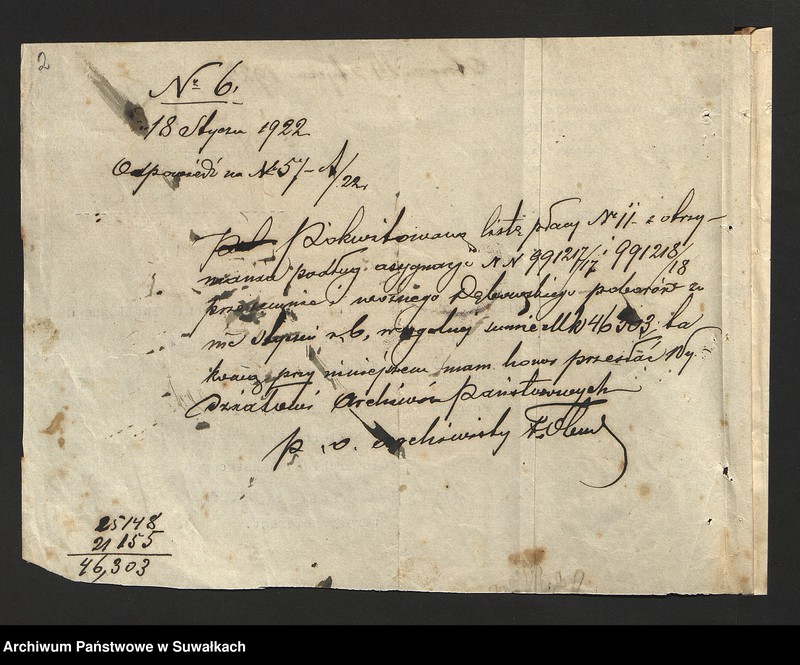 2
Nr 6.
18 Stycznia 1922
Odpowiedź na Nr 57-A/22.
Pokwitowaną listę płacy Nr 11 - z otrzy-
mania podług asygnacji NN 991217/17 i 991218/18
przezemnie i woźnego Dębowskiego poborów za
mc styczeń r.b. w ogólnej sumie Mk 46303, ta
kową przy niniejszem mam honor przesłać Wy
działowi Archiwów Państwowych
p. o. Archiwisty
25148
21155
46,303
Archiwum Państwowe w Suwałkach